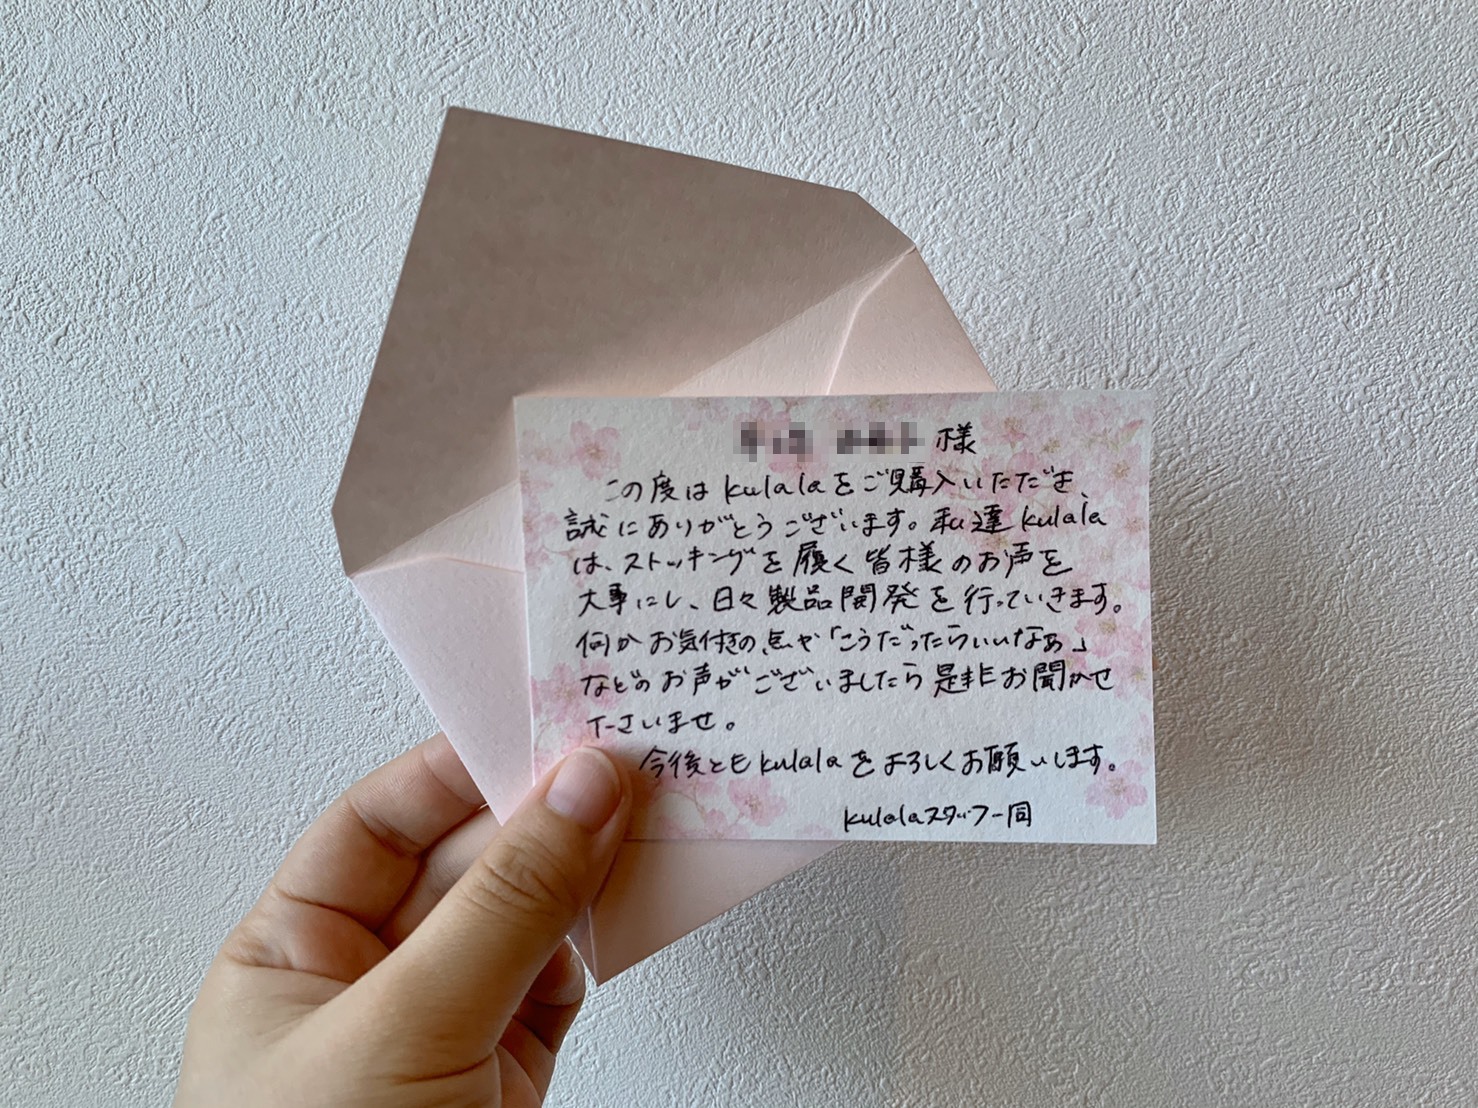 様
この度はkulalaをご購入いただき、
誠にありがとうございます。私達kulala
は、ストッキングを履く皆様のお声を
大事にし、日々製品開発を行っていきます。
何かお気付きの点や「こうだったらいいなぁ」
などのお声がございましたら是非お聞かせ
下さいませ。
今後ともkulalaをよろしくお願いします。
kulalaスタッフ一同